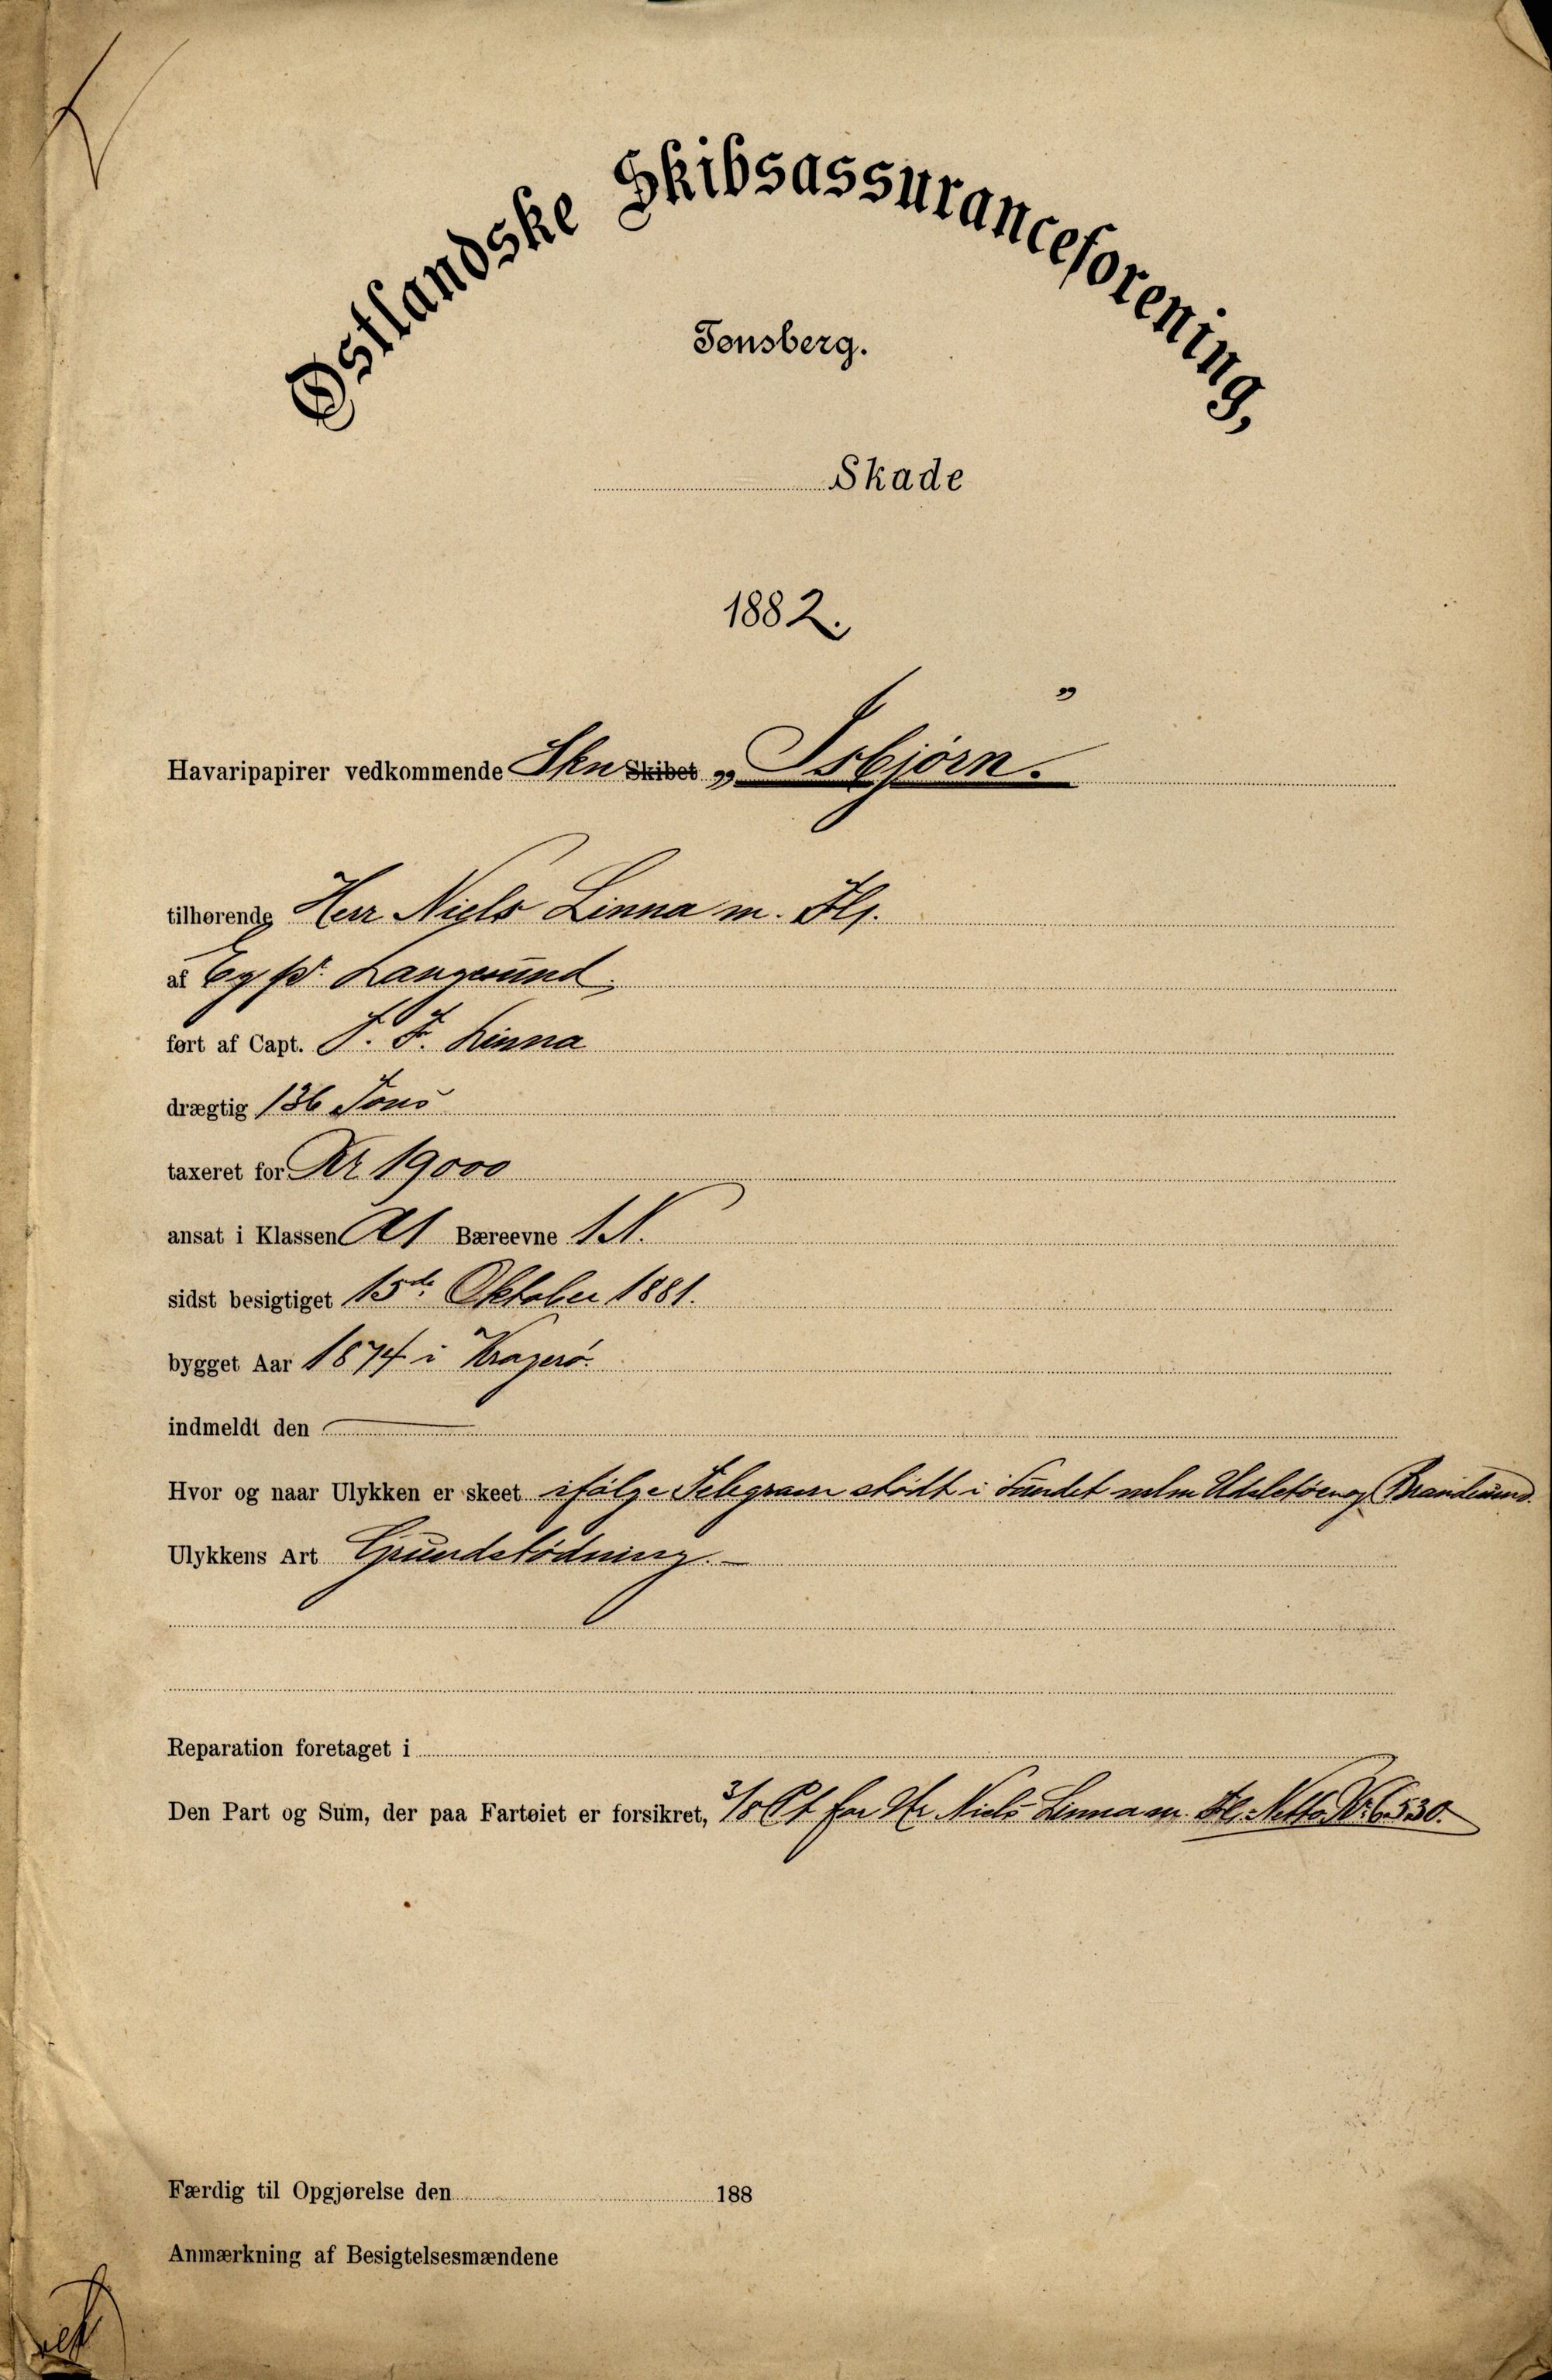 Østlandske Skibsassuranceforening,
Tønsberg.
Skade
1882.
Havaripapirer vedkommende Skn Skibet „Isbjørn."
tilhørende Herr Niels Linna m. Fl.
af Eg pr Langesund,
ført af Capt. J. F. Linna
drægtig 136 Tons
taxeret for Kr 19000
ansat i Klassen A1 Bæreevne 1 N.
sidst besigtiget 15de Oktober 1881.
bygget Aar 1874 i Kragerø.
indmeldt den —
Hvor og naar Ulykken er skeet ifølge Telegram stødt i Sundet melm og Brandsund.
Ulykkens Art Grundstødning. —
Reparation foretaget i
Den Part og Sum, der paa Fartøiet er forsikret, 3/8 Pt for Hr Niels Linna m. Fl. Netto Kr. 6530.
Færdig til Opgjørelse den 188
Anmærkning af Besigtelsesmændene